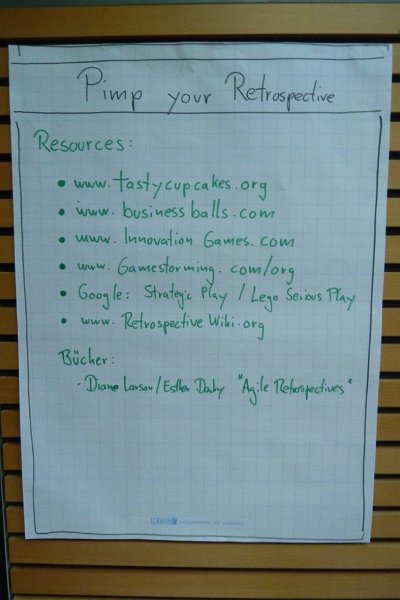 Pimp your Retrospective
Resources:
• www.tastycupcakes.org
• www.businessballs.com
• www.Innovation Games.com
• www.Gamestorming.com/org
• Google: Strategic Play / Lego Serious Play
• www.RetrospectiveWiki.org
Bücher:
- Diana Larson/Esther Derby "Agile Retrospectives"